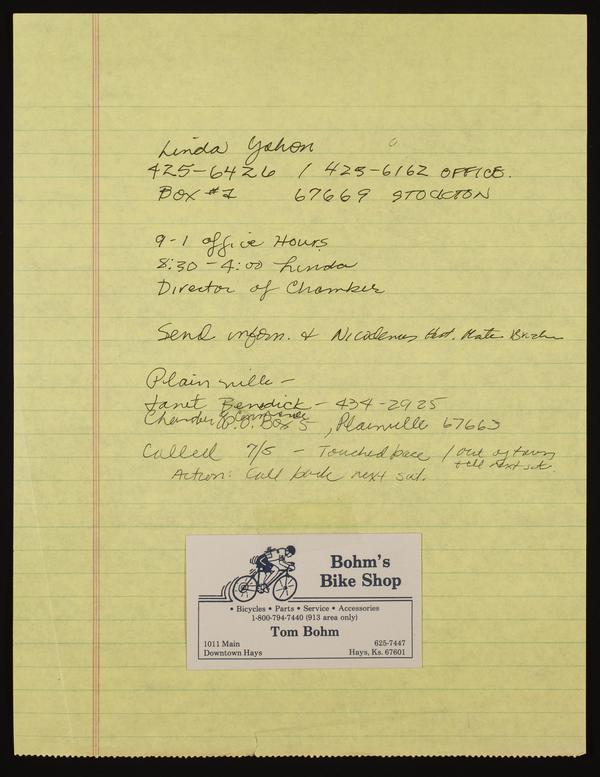 Linda Yohon
425-6426 / 425-6162 OFFICE.
BOX #1 67669 STOCKTON
9-1 office Hours
8:30 - 4:00 Linda
Director of Chamber
Send inform. & Nicodemus Hist.
Plainville -
Janet Benedick - 434-2925
Chamber of Commerce
P.O. Box 5, Plainville 67663
Called 7/5 - Touched bace / out of town
till next sat.
Action: Call back next sat.
Bohm's
Bike Shop
• Bicycles • Parts • Service • Accessories
1-800-794-7440 (913 area only)
Tom Bohm
1011 Main 625-7447
Downtown Hays Hays, Ks. 67601